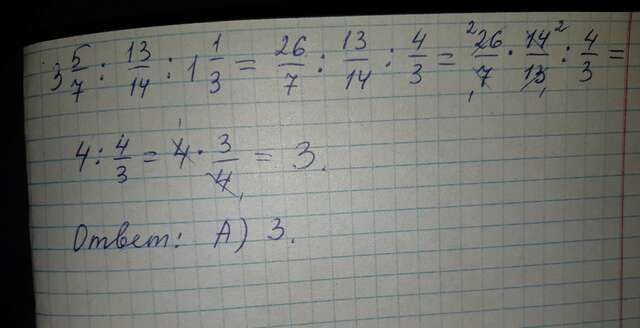 3 5/7 : 13/14 : 1 1/3 = 26/7 : 13/14 : 4/3 = ²26/7₁ · 14²/13₁ : 4/3 =
4 : 4/3 = 4¹ · 3/4₁ = 3.
Ответ: А) 3.